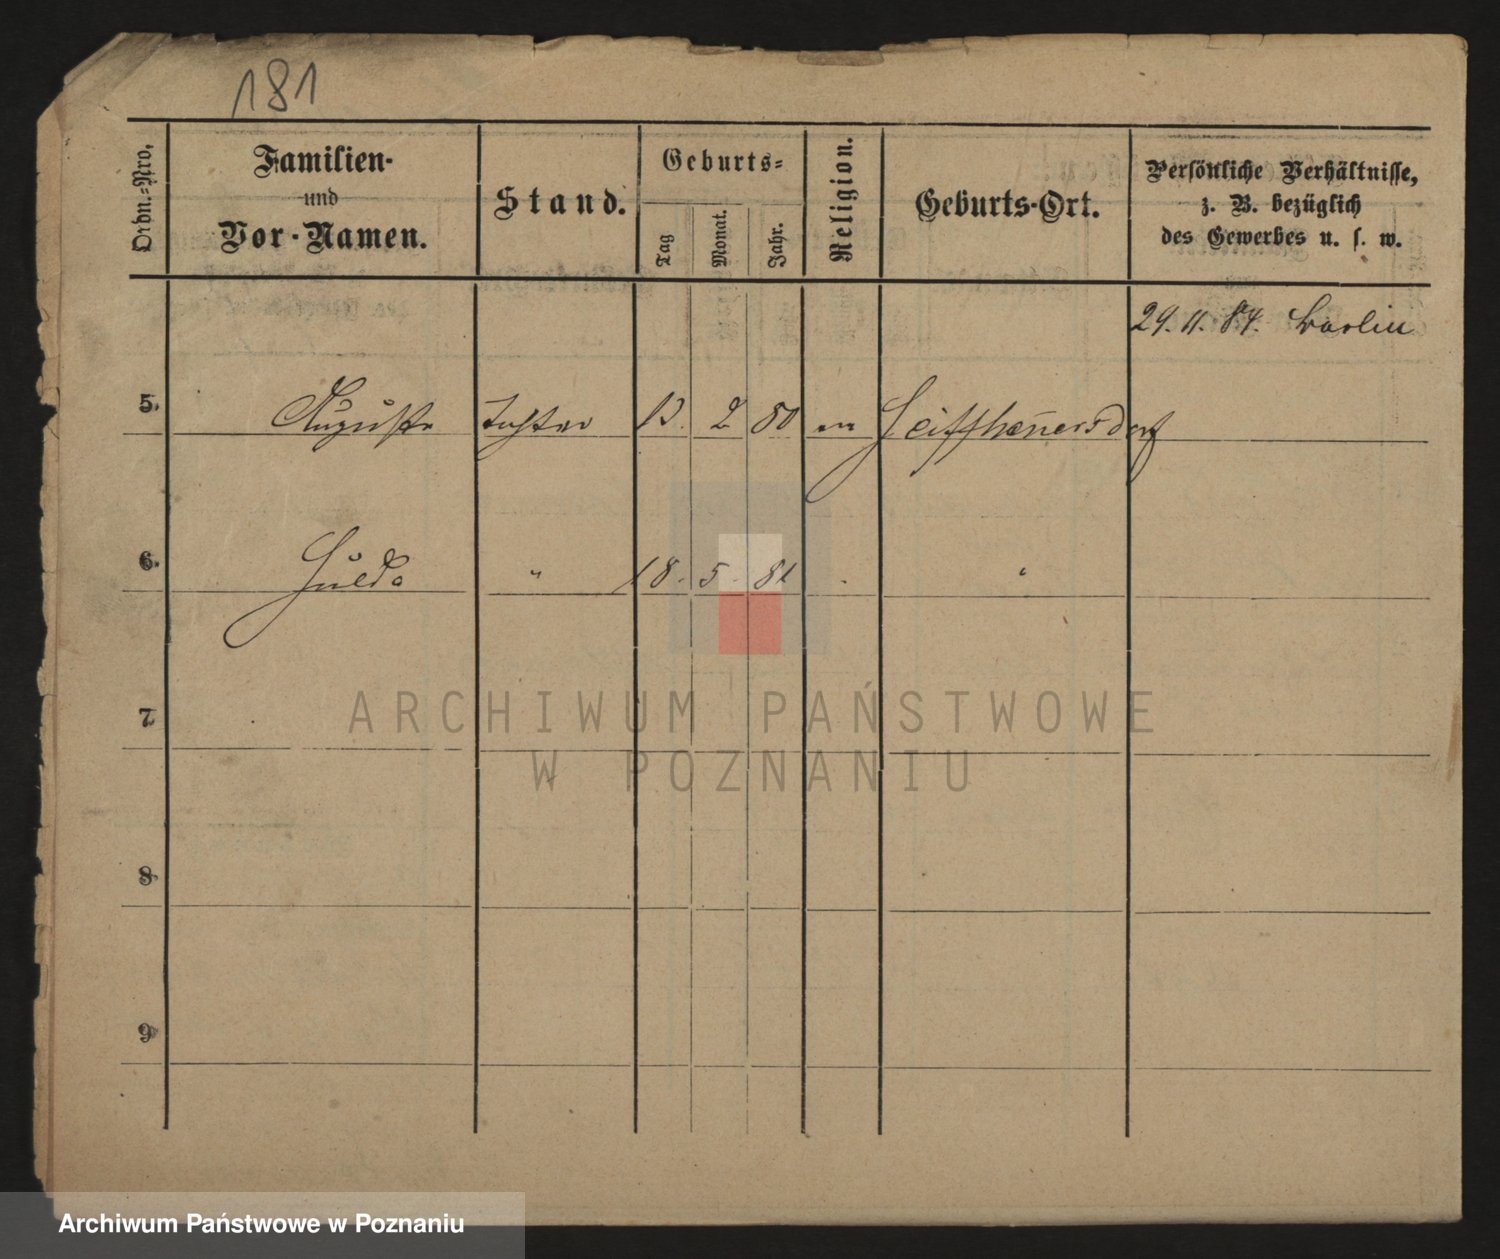 181
Ordn.-Nro.
Familien-
und
Vor-Namen.
Stand.
Geburts-
Tag
Monat.
Jahr.
Religion.
Geburts-Ort.
Persönliche Verhältnisse,
z. B. bezüglich
des Gewerbes u. s. w.
29. 11. 84. Berlin
5. Auguste Tochter 13. 2 80 ev
6. Hulda " 18. 5. 81 " "
7.
8.
9.
ARCHIWUM PAŃSTWOWE
W POZNANIU
Archiwum Państwowe w Poznaniu